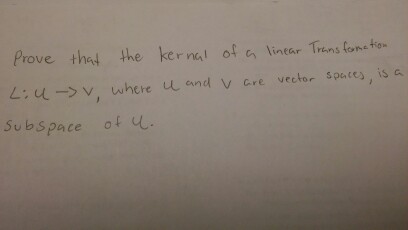 Prove that the kernal of a linear Transformation
L: U -> V, where U and V are vector spaces, is a
Subspace of U.